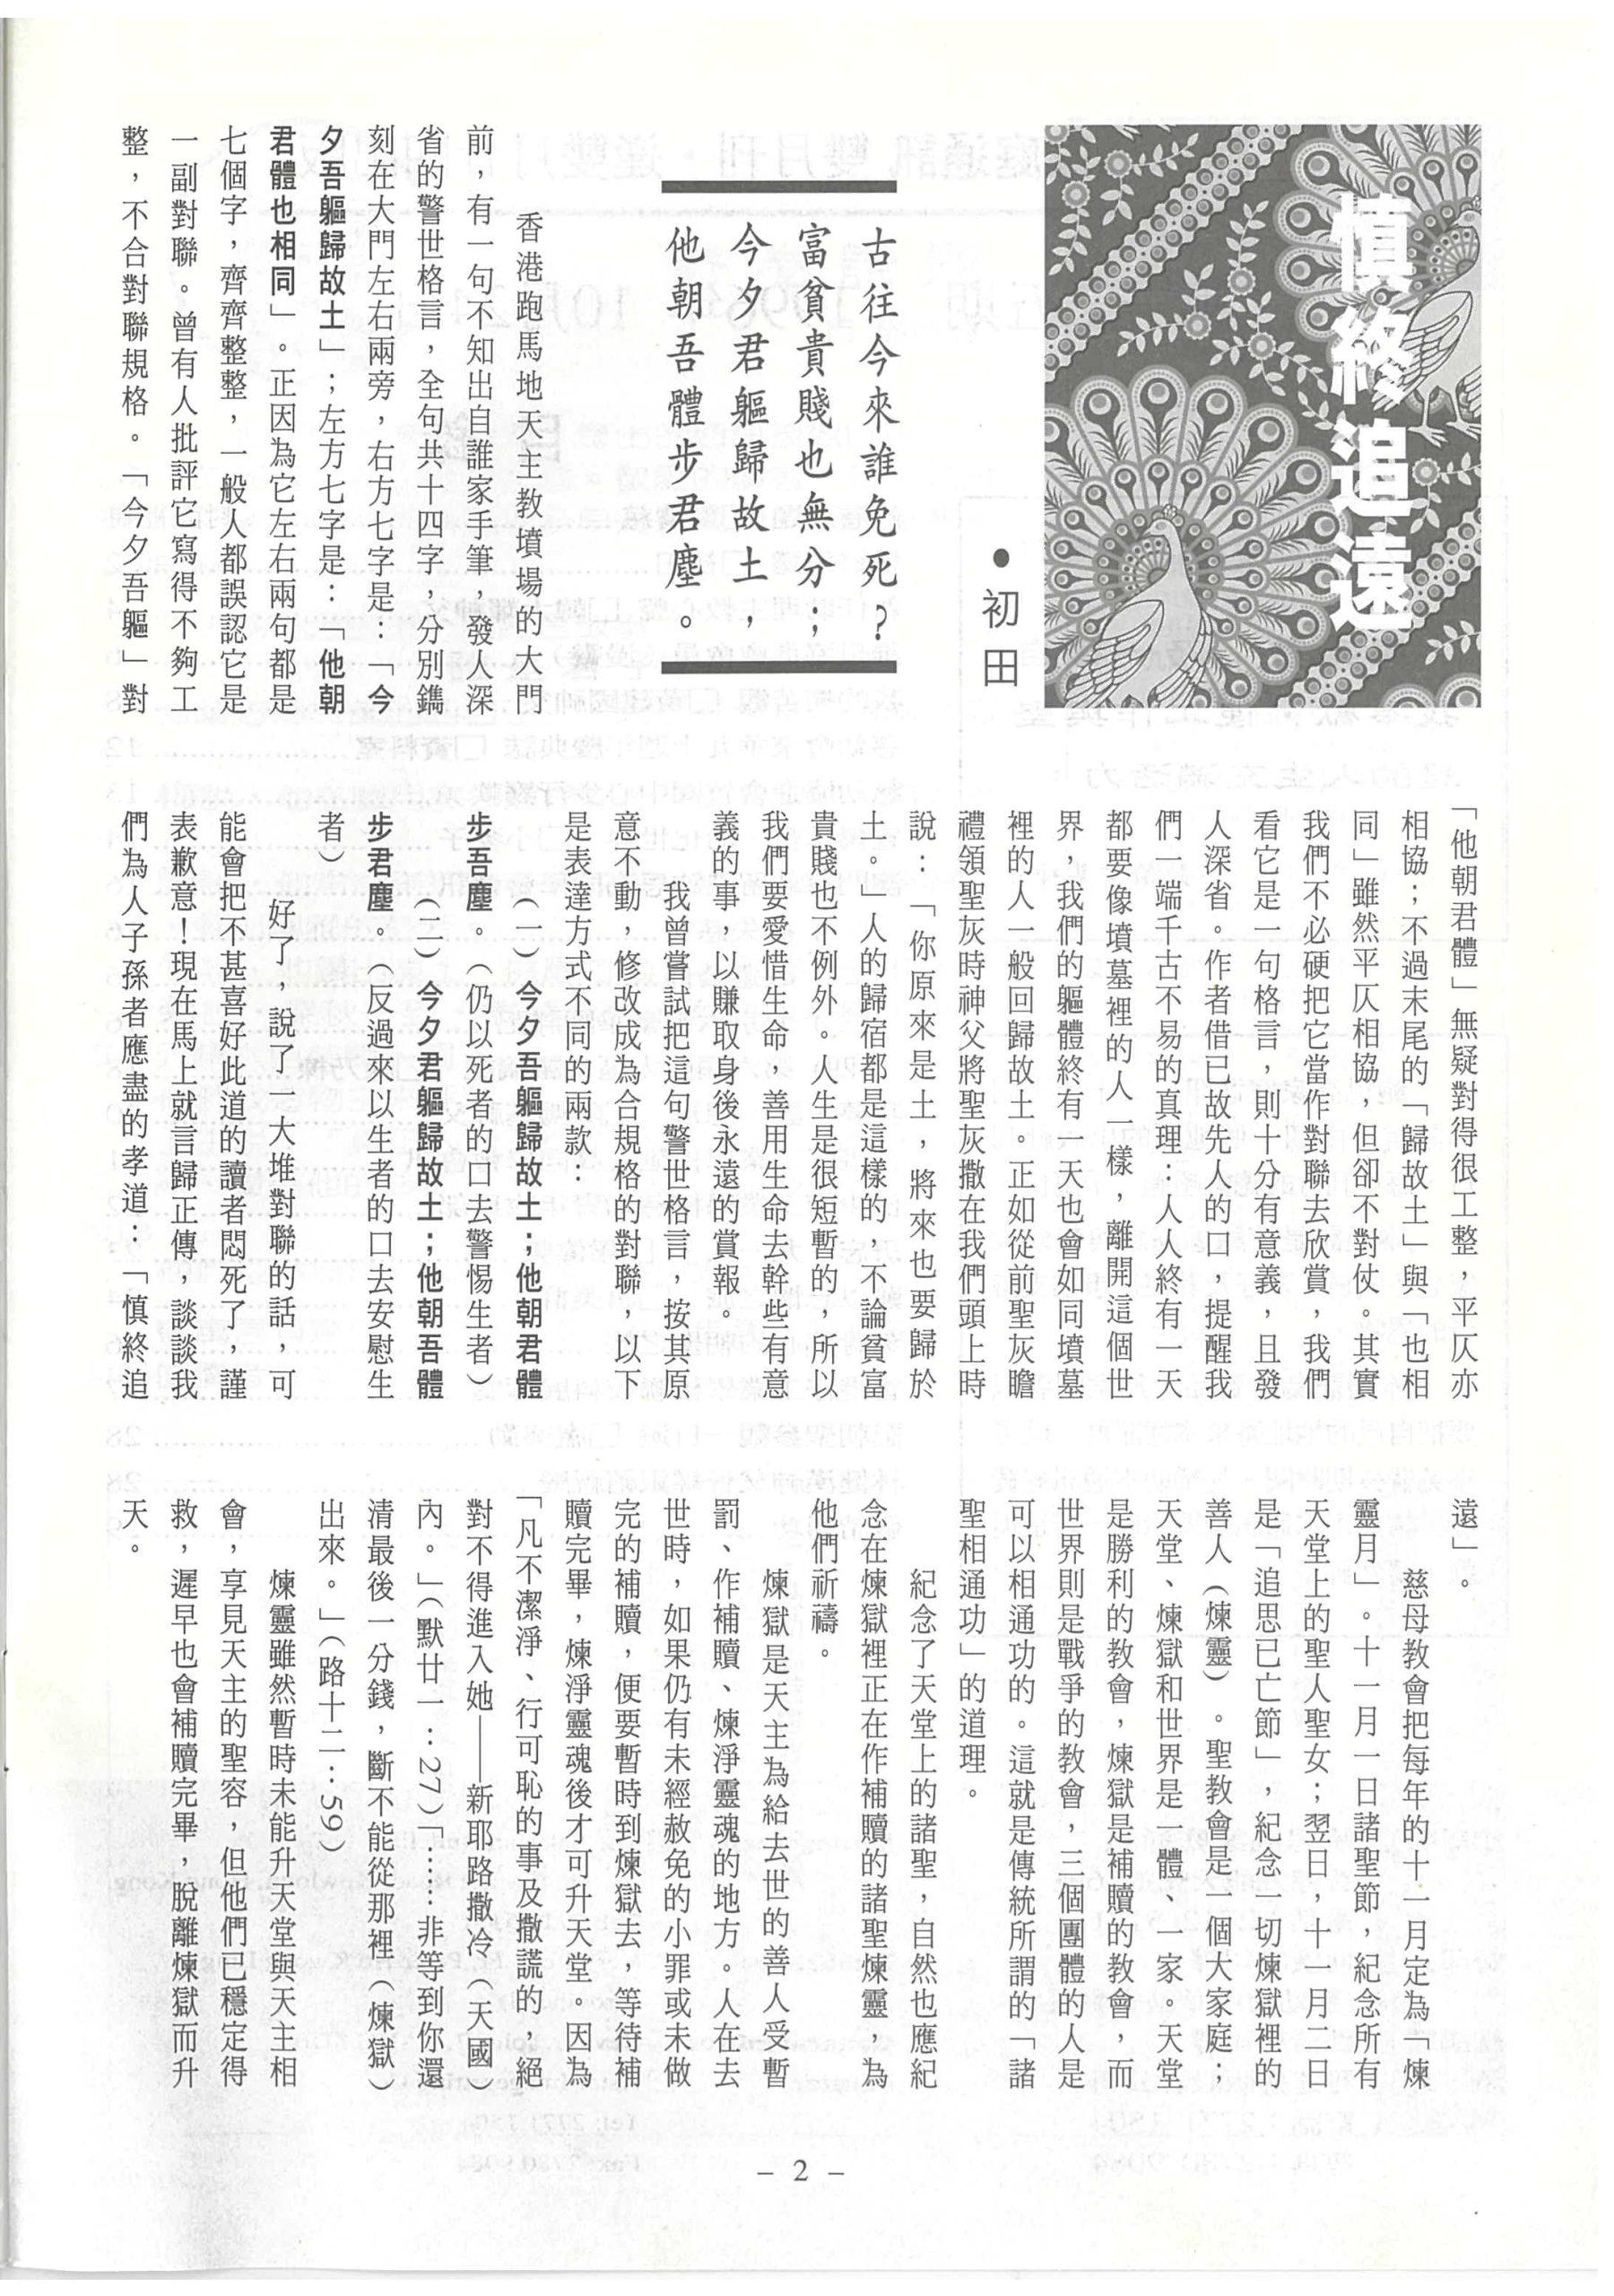 慎終追遠
•初田
古往今來誰免死?
富貧貴賤也無分;
今夕君軀歸故土,
他朝吾體步君塵。
香港跑馬地天主教墳場的大門
前,有一句不知出自誰家手筆,發人深
省的警世格言,全句共十四字,分別鐫
刻在大門左右兩旁,右方七字是:「今
夕吾軀歸故土」;左方七字是:「他朝
君體也相同」。正因為它左右兩句都是
七個字,齊齊整整,一般人都誤認它是
一副對聯。曾有人批評它寫得不夠工
整,不合對聯規格。「今夕吾軀」對
「他朝君體」無疑對得很工整,平仄亦
相協;不過末尾的「歸故土」與「也相
同」雖然平仄相協,但卻不對仗。其實
我們不必硬把它當作對聯去欣賞,我們
看它是一句格言,則十分有意義,且發
人深省。作者借已故先人的口,提醒我
們一端千古不易的真理:人人終有一天
都要像墳墓裡的人一樣,離開這個世
界,我們的軀體終有一天也會如同墳墓
裡的人一般回歸故土。正如從前聖灰瞻
禮領聖灰時神父將聖灰撒在我們頭上時
說:「你原來是土,將來也要歸於
土。」人的歸宿都是這樣的,不論貧富
貴賤也不例外。人生是很短暫的,所以
我們要愛惜生命,善用生命去幹些有意
義的事,以賺取身後永遠的賞報。
我曾嘗試把這句警世格言,按其原
意不動,修改成為合規格的對聯,以下
是表達方式不同的兩款:
(一)今夕吾軀歸故土;他朝君體
步吾塵。(仍以死者的口去警惕生者)
(二)今夕君軀歸故土;他朝吾體
步君塵。(反過來以生者的口去安慰生
者)
好了,說了一大堆對聯的話,可
能會把不甚喜好此道的讀者悶死了,謹
表歉意!現在馬上就言歸正傳,談談我
們為人子孫者應盡的孝道:「慎終追
遠」。
慈母教會把每年的十一月定為「煉
靈月」。十一月一日諸聖節,紀念所有
天堂上的聖人聖女;翌日,十一月二日
是「追思已亡節」,紀念一切煉獄裡的
善人(煉靈)。聖教會是一個大家庭;
天堂、煉獄和世界是一體、一家。天堂
是勝利的教會,煉獄是補贖的教會,而
世界則是戰爭的教會,三個團體的人是
可以相通功的。這就是傳統所謂的「諸
聖相通功」的道理。
紀念了天堂上的諸聖,自然也應紀
念在煉獄裡正在作補贖的諸聖煉靈,為
他們祈禱。
煉獄是天主為給去世的善人受暫
罰、作補贖、煉淨靈魂的地方。人在去
世時,如果仍有未經赦免的小罪或未做
完的補贖,便要暫時到煉獄去,等待補
贖完畢,煉淨靈魂後才可升天堂。因為
「凡不潔淨、行可恥的事及撒謊的,絕
對不得進入她——新耶路撒冷(天國)
內。」(默廿一:27)「……非等到你還
清最後一分錢,斷不能從那裡(煉獄)
出來。」(路十二:59)
煉靈雖然暫時未能升天堂與天主相
會,享見天主的聖容,但他們已穩定得
救,遲早也會補贖完畢,脫離煉獄而升
天。
- 2 -